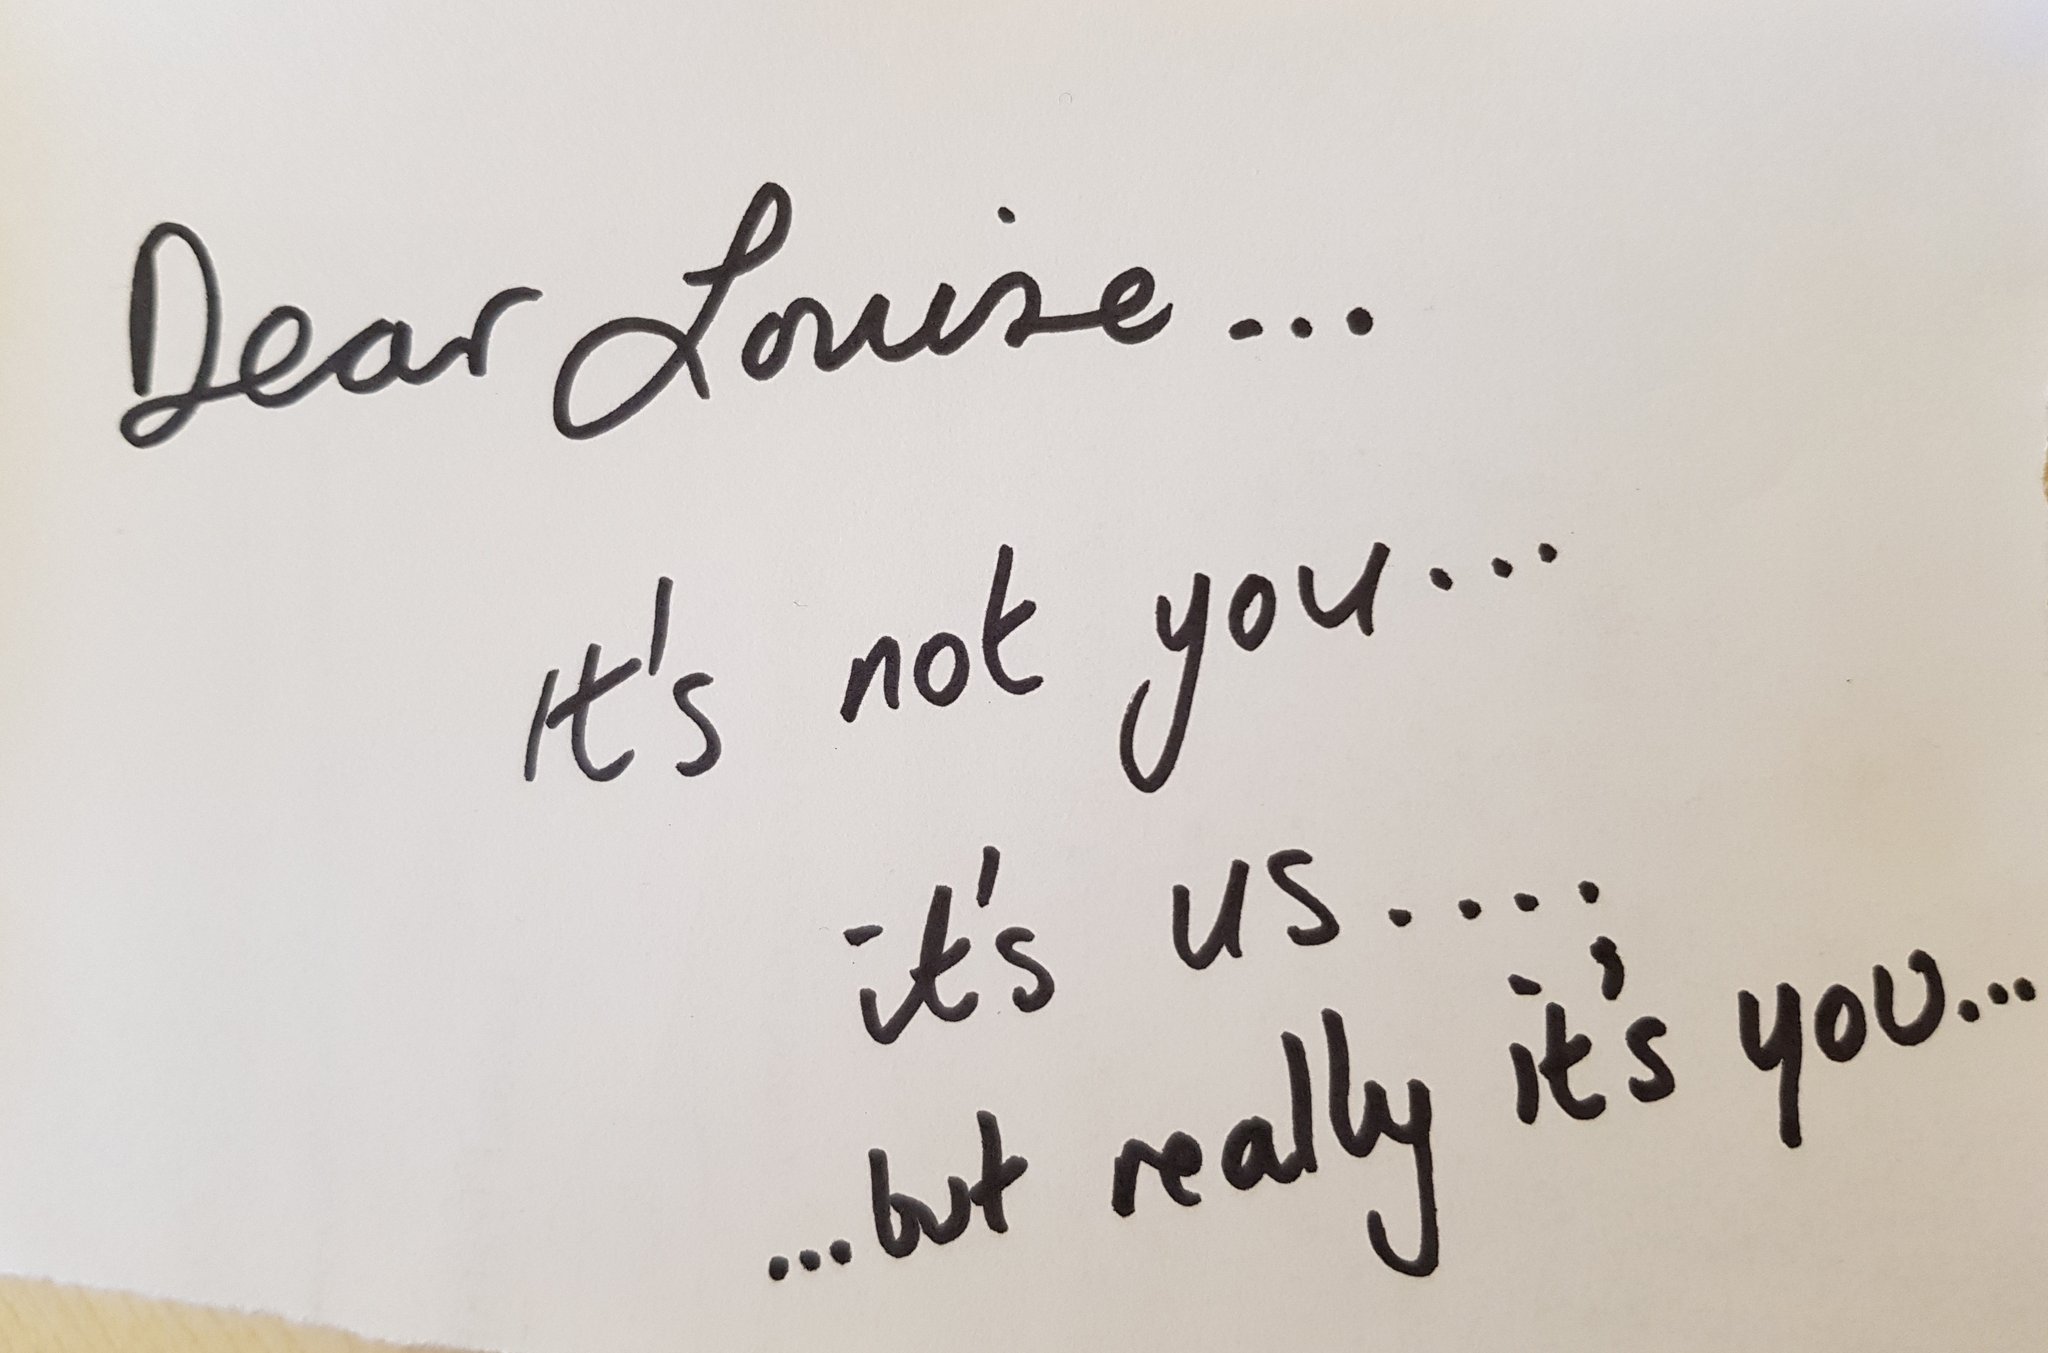 Dear Louise...
It's not you...
it's us....
...but really it's you...